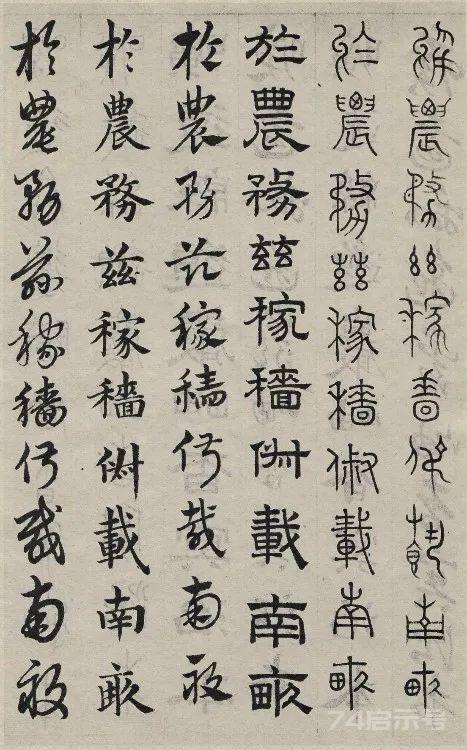 於農務茲稼穡俶載南畝
於農務茲稼穡俶載南畝
於農務茲稼穡俶載南畝
於農務茲稼穡俶載南畝
於農務茲稼穡俶載南畝
於農務茲稼穡俶載南畝
74启示号